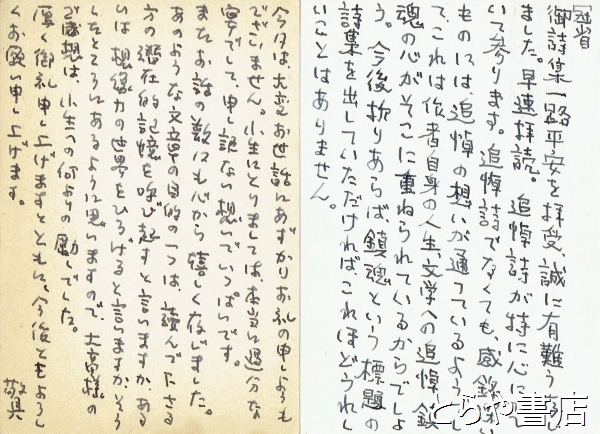 冠省
御詩集一路平安を拝受、誠に有難うござい
ました。早速拝読。追悼詩が特に心にしみ
いて参ります。追悼詩でなくても、感銘深い
ものには追悼の想いが通っているようし
て、これは作者自身の人生、文学への追悼、鎮
魂の心がそこに重ねられているからでしょ
う。今後折りあらば、鎮魂という標題の
詩集を出していただければ、これほどうれし
いことはありません。
今日は、大変お世話にあずかりお礼の申しようも
ございません。小生にとりましては本当に過分な
宴でして、申し訳ない想いでいっぱいです。
またお話の数々にも心から嬉しく存じました。
あのような文章の目的の一つは、読んで下さる
方の潜在的記憶を呼び起すと言いますか、ある
いは想像力の世界をひろげると言いますか、そう
したところにあるように思いますので、大高様の
ご感想は、小生への何よりの励しでした。
厚く御礼申し上げますとともに、今後ともよろし
くお願い申し上げます。
敬具
とらや書店